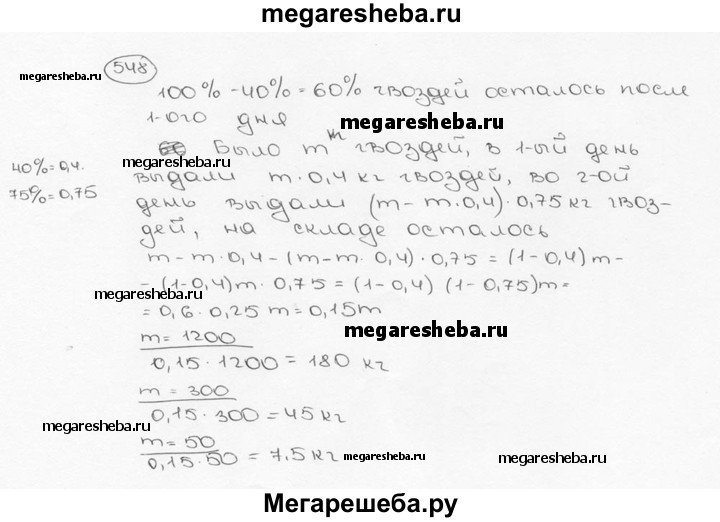 megaresheba.ru
548
megaresheba.ru
100% - 40% = 60% гвоздей осталось после
1-ого дня
megaresheba.ru
Было m гвоздей, в 1-ый день
40% = 0,4.
megaresheba.ru
выдали m · 0,4 кг гвоздей, во 2-ой
75% = 0,75
день выдали (m - m · 0,4) · 0,75 кг гвоз-
дей, на складе осталось
m - m · 0,4 - (m - m · 0,4) · 0,75 = (1 - 0,4) m -
- (1 - 0,4) m · 0,75 = (1 - 0,4) (1 - 0,75) m =
megaresheba.ru
= 0,6 · 0,25 m = 0,15 m
m = 1200
megaresheba.ru
0,15 · 1200 = 180 кг
m = 300
0,15 · 300 = 45 кг
megaresheba.ru
m = 50
0,15 · 50 = 7,5 кг
megaresheba.ru
megaresheba.ru
Мегарешеба.ру